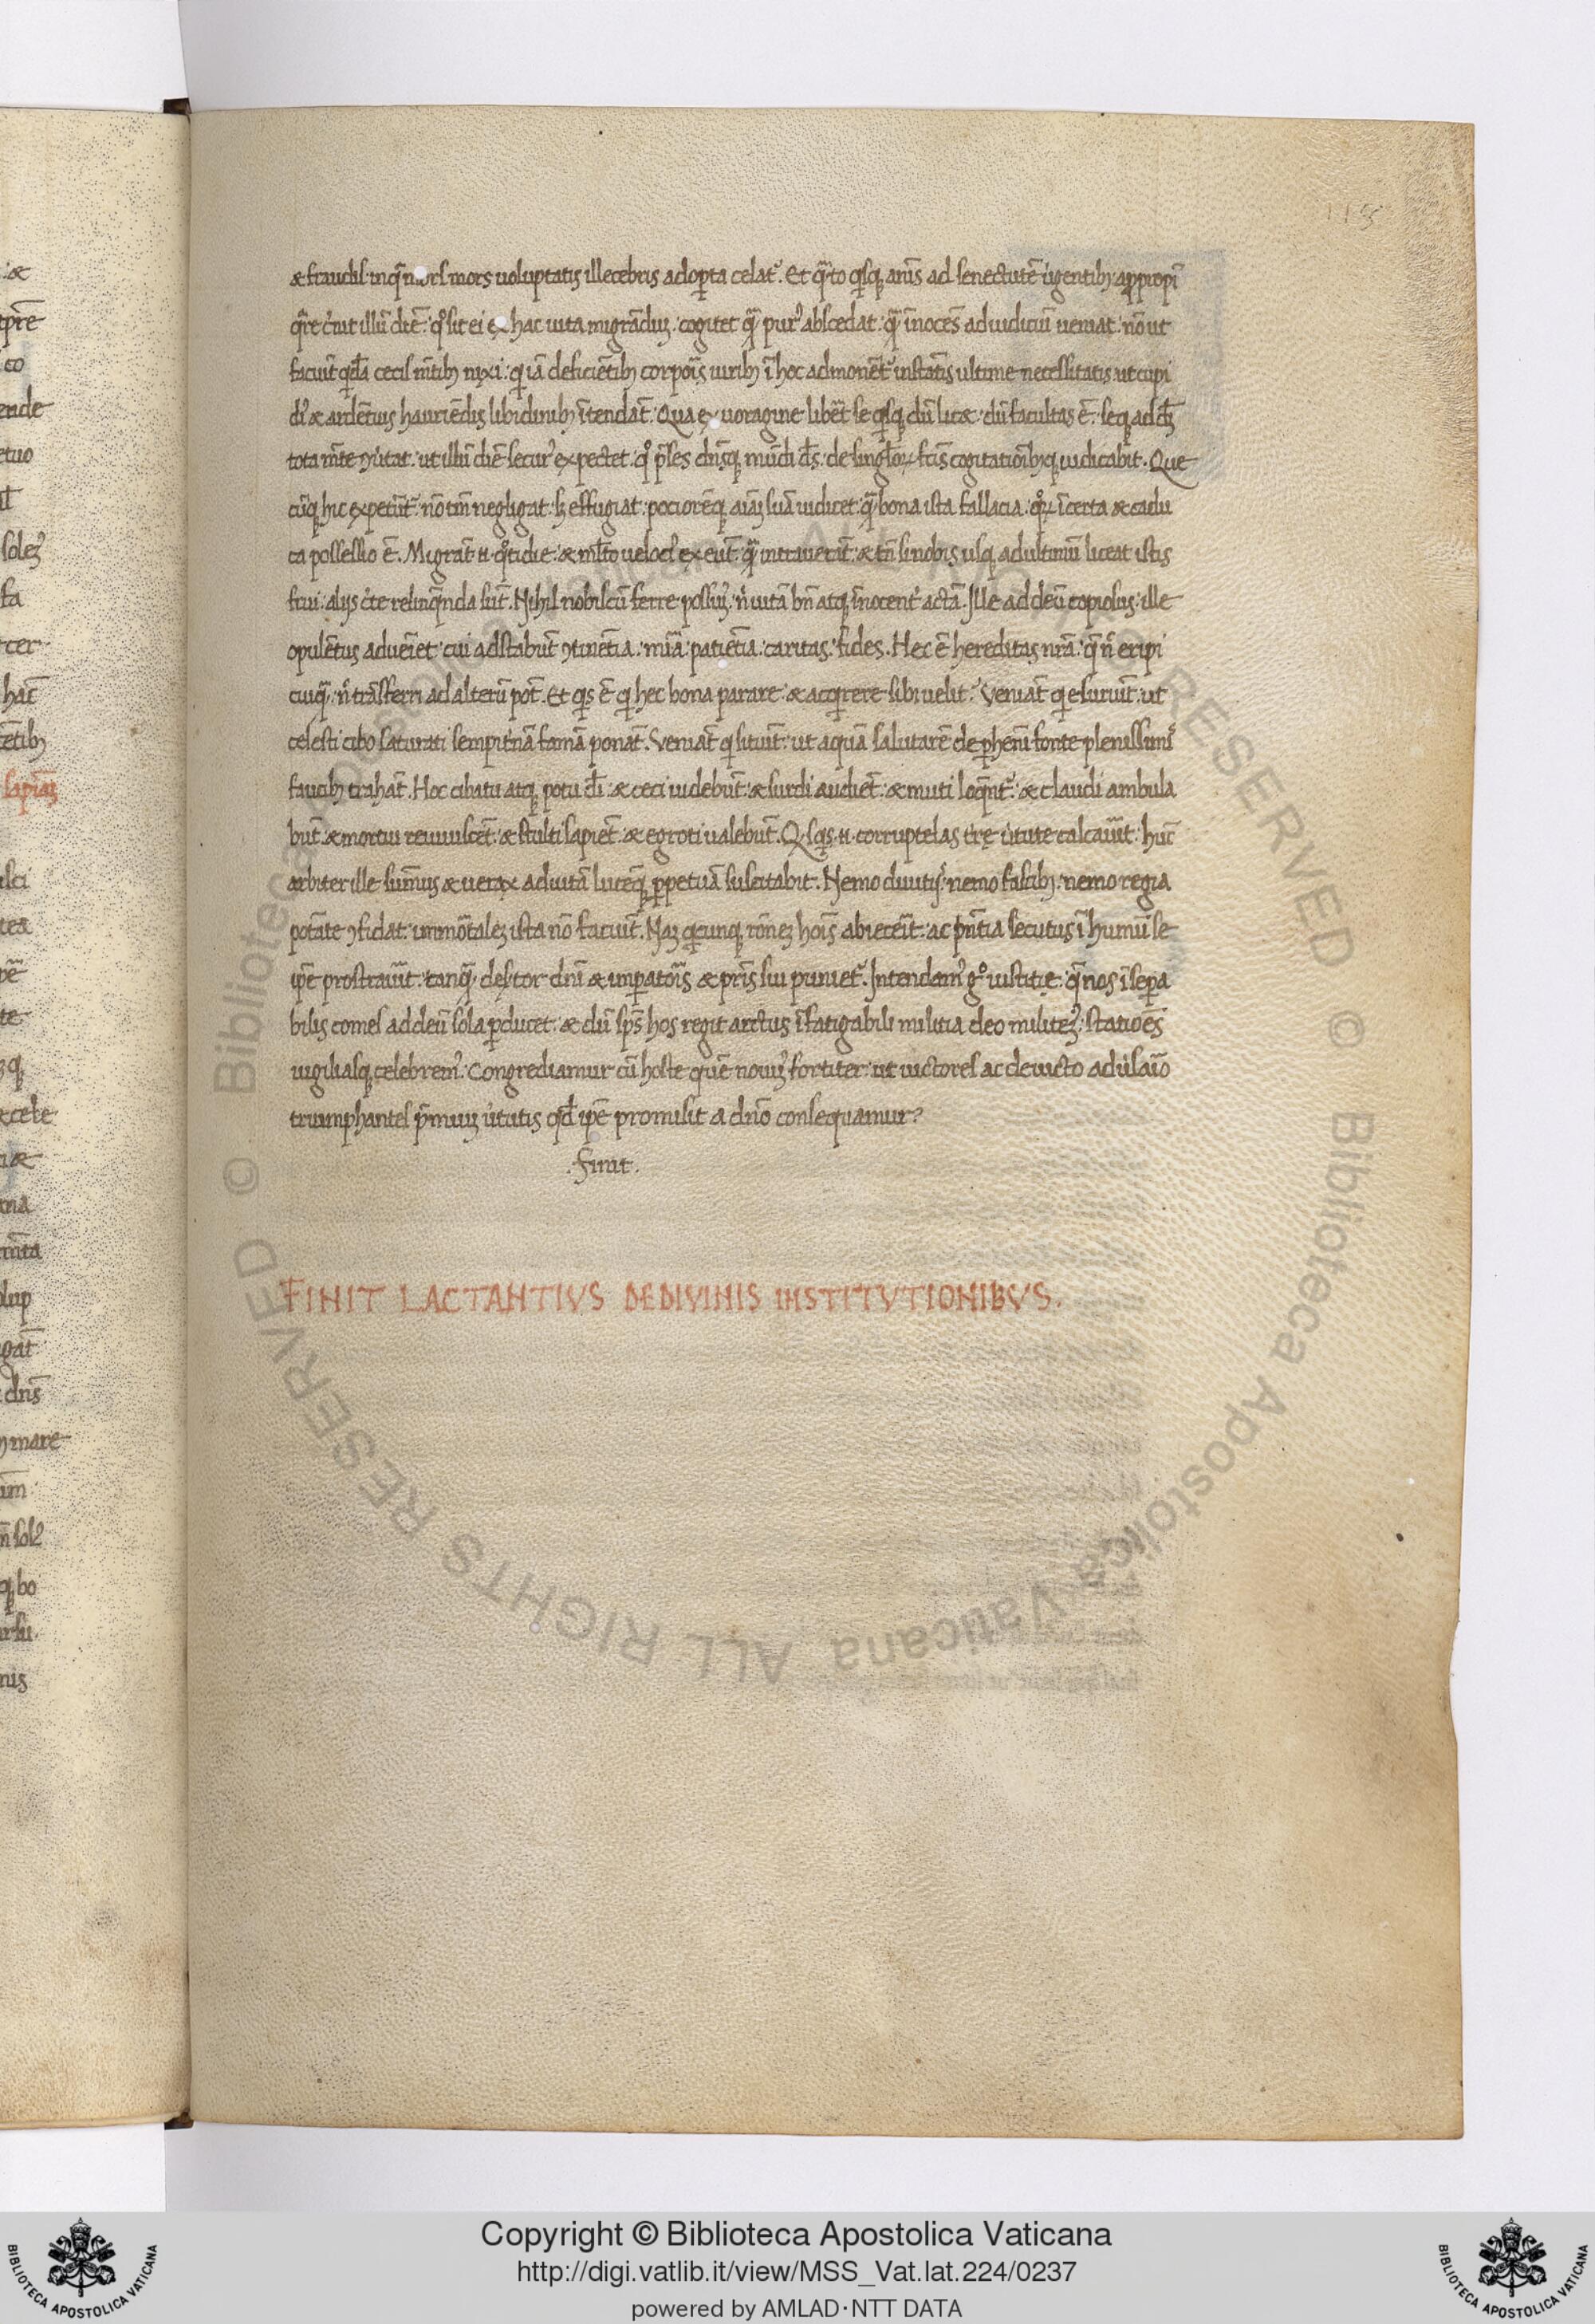 115
& fraudis. inq̄ n orſ mors uoluptatis illecebris adop̱ta celat᷑. Et q̄to q̱ſq; anīs ad ſenectutē ūgentib; appropī
q̄re c̓nit illū diē. qͦ ſit ei ex hac uita migrādū. cogitet q̄ purꝰ abſcedat. q̄ īnocēs ad iudiciū ueniat. nō ut
faciūt qd̄ā cecis mītib; nixi. q iā deficiētib; corpoīs uirib; ī hoc admonēt᷑ inſtātis ultime neceſſitatis. ut cupi
diꝰ & ardētius hauriēdis libidinib; ītendāt. Qua ex uoragine libēt ſe q̱ſq; dū lic&. dū facultas ē. ſeq; ad dm̄
tota mīte ꝯutat. ut illū diē ſecurꝰ expectet. qͦ p̄ſes dn̄ſq; mūdi ds̄. de ſinglo℞ fcīs cogitationib;q; iudicabit. Que
cūq; hic expetūt. nō tm̄ negligat. ſ; effugiat. pociorēq; aīaꝫ ſuā iudicet. q̄ bona iſta fallacia. quo℞ īcerta & cadu
ca poſſeſſio ē. Migrāt n̄ qͦtidie. & ml̄to uelociꝰ exeūt. q̄ intrauerāt. & tn̄ ſi nobis uſq; ad ultimū liceat iſtis
frui. alijs c̓te relinq̄nda ſūt. Nihil nobiſcū ferre poſſuꝰ. n̄ uitā bn̄ atq; īnocent᷑ actā. Ille ad deū copioſus. ille
opulētus adueīet. cui adſtabūt ꝯtinētia. mīa. patiētia. caritas. fides. Hec ē hereditas nr̄a. q̄ n̄ eripi
cuiq̄. n̄ trāſferri ad alterū pōt. Et q̱s ē q̱ hec bona parare. & acq̱rere ſibi uelit? Veniāt q̱ eſuriūt. ut
celeſti cibo ſaturati ſempit̓nā famā ponāt. Veniāt q̱ ſitiūt. ut aquā ſalutarē de p̱henī fonte pleniſſimiſ
faucib; trahāt. Hoc cibatu atq; potu dī. & ceci uidebūt. & ſurdi audiēt. & muti loq̄nt᷑. & claudi ambula
būt. & mortui reuiuiſcēt. & ſtulti ſapiēt. & egroti ualebūt. Q̱ſq̱s n̄ corruptelas tr̄e u̓tute calcauīt. hūc
arbiter ille ſum̄us & uerax ad uitā lucēq; p̱petuā ſuſcitabit. Nemo diuitijſ. nemo faſcib;. nemo regia
potāte ꝯfidat. immōtaleꝫ iſta nō faciūt. Naꝫ q̱cunq; rōneꝫ hoīs abiecēit. ac pn̄tia ſecutus ī humū ſe
ip̄e proſtrauīt. tanq̄ deſ̓tor dn̄i & imp̱atoīs & pr̄is ſui puniet᷑. Intendamꝰ gͦ iuſtitię. q̄ nos īſep̱a
bilis comeſ ad deū ſola p̱ducet. & dū ſps̄ hos regit artus īfatigabili militia deo militeꝰ. ſtatiōes
uigiliaſq; celebremꝰ. Congrediamur cū hoſte quē nouiꝰ fortiter. ut uictoreſ ac deuicto adu̓ſaīo
triumphanteſ p̄miuꝫ u̓tutis qd̄ ip̄e promiſit a dn̄o conſequamur?
.Finit.
FINIT LACTANTIVS DE DIVINIS INSTITVTIONIBVS.
Copyright © Biblioteca Apostolica Vaticana
http://digi.vatlib.it/view/MSS_Vat.lat.224/0237
powered by AMLAD·NTT DATA